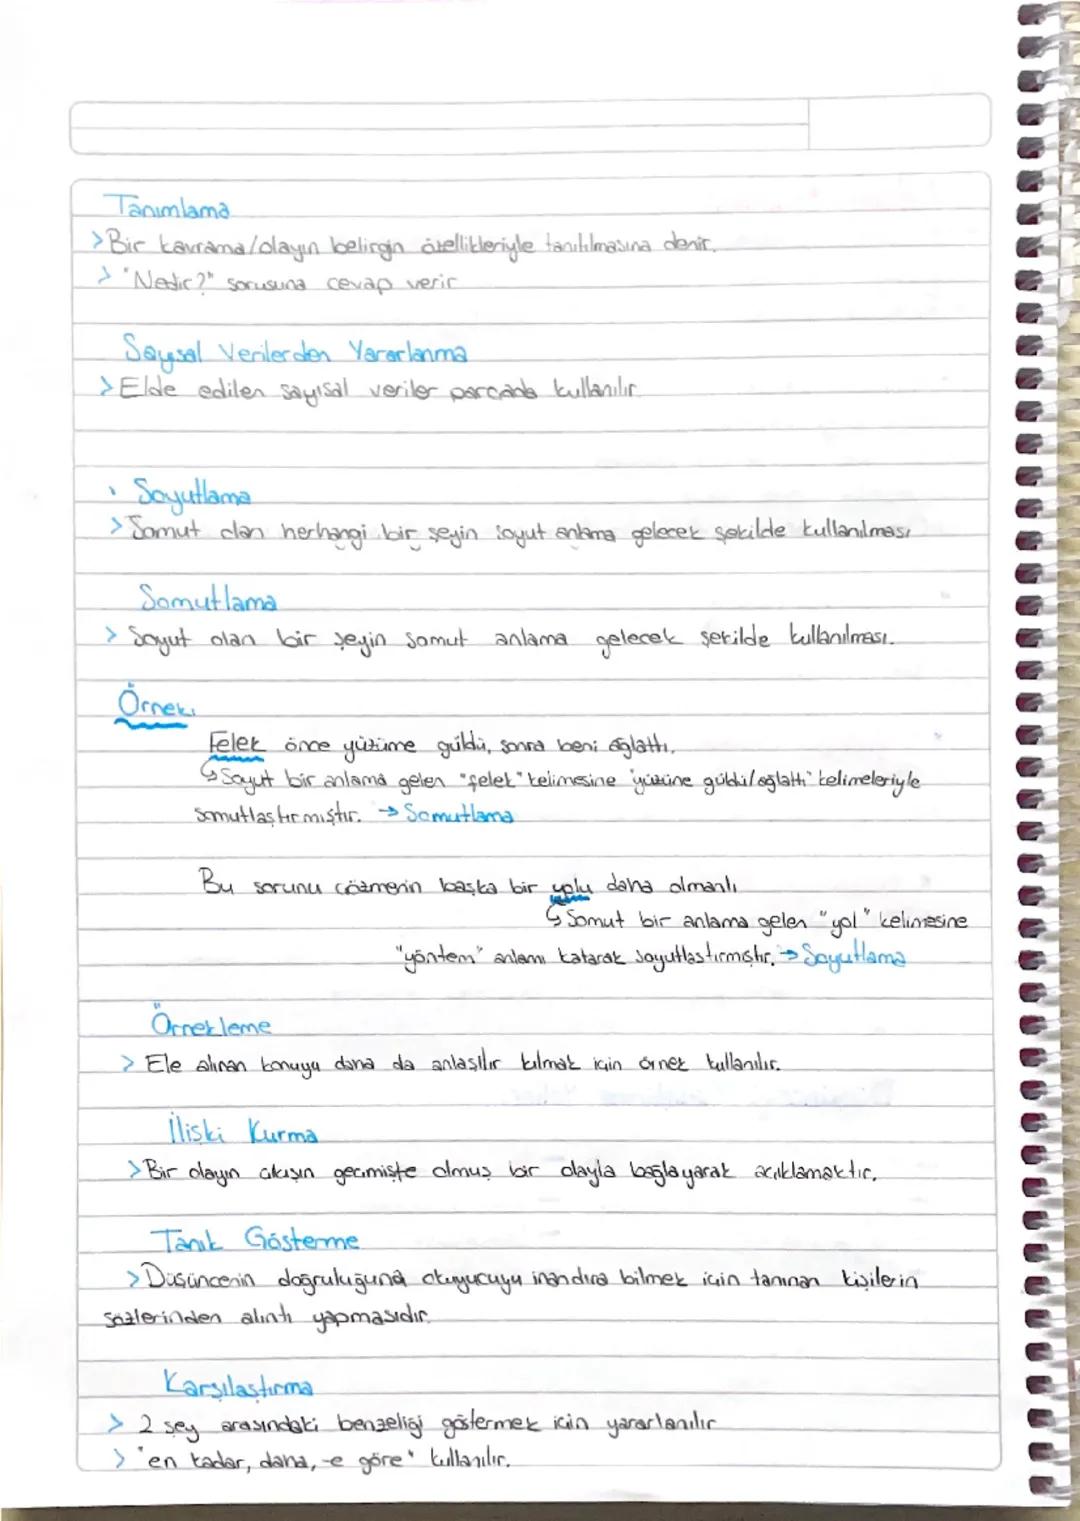 Tanımlama
> Bir kavrama/olayın belirgin özellikleriyle tanıtılmasına denir.
> "Nedir?" sorusuna cevap verir
Sayısal Verilerden Yararlanma
> Elde edilen sayısal veriler parçada kullanılır.
Soyutlama
> Somut olan herhangi bir şeyin soyut anlama gelecek şekilde kullanılması
Somutlama
> Soyut olan bir şeyin somut anlama gelecek şekilde kullanılması.
Örnek:
Felek önce yüzüme güldü, sonra beni ağlattı.
↳ Soyut bir anlama gelen "felek" kelimesine "yüzüne güldü/ağlattı" kelimeleriyle
somutlaştırmıştır. → Somutlama
Bu sorunu çözmenin başka bir yolu daha olmanlı
↳ Somut bir anlama gelen "yol" kelimesine
"yöntem" anlamı katarak soyutlaştırmıştır. → Soyutlama
Örnekleme
> Ele alınan konuyu daha da anlaşılır kılmak için örnek kullanılır.
İlişki Kurma
> Bir olayın akışın geçmişte olmuş bir olayla bağlayarak açıklamaktır.
Tanık Gösterme
> Düşüncenin doğruluğuna okuyucuyu inandıra bilmek için tanınan kişilerin
sözlerinden alıntı yapmasıdır.
Karşılaştırma
> 2 şey arasındaki benzeliği göstermek için yararlanılır
> "en kadar, daha, -e göre" kullanılır.